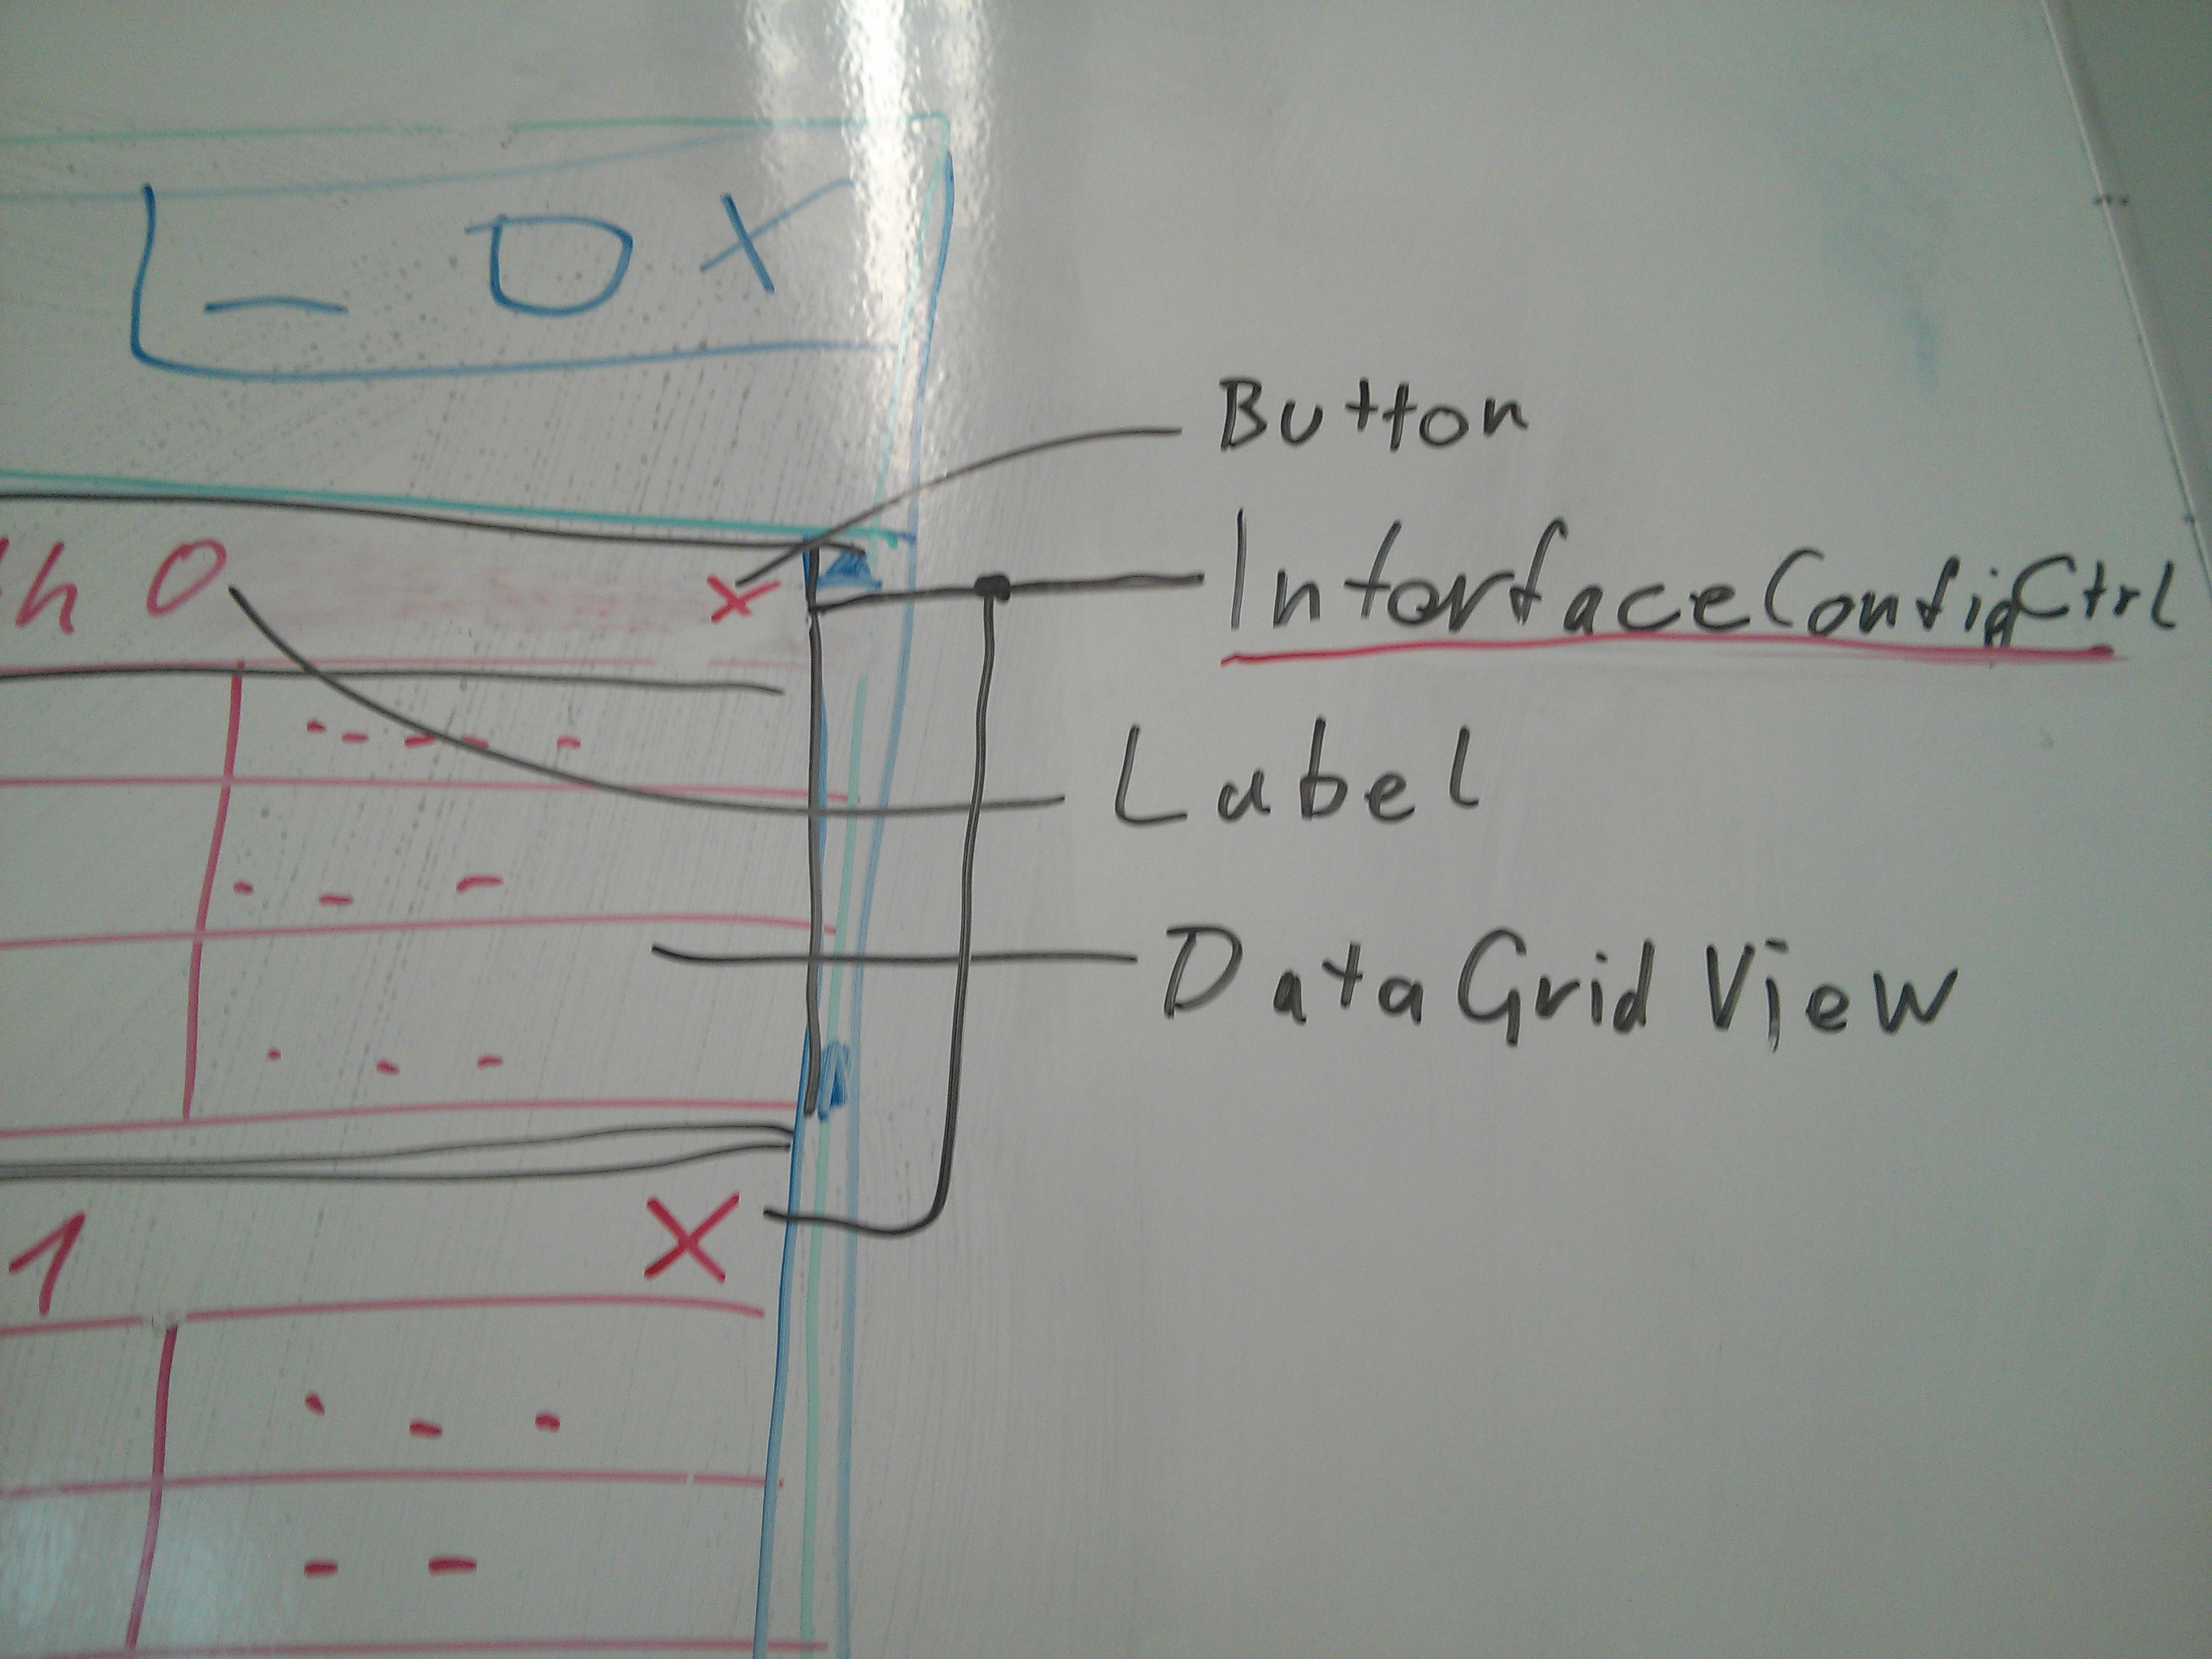 _ O X
Button
h 0 x
InterfaceConfigCtrl
Label
DataGridView
1 X